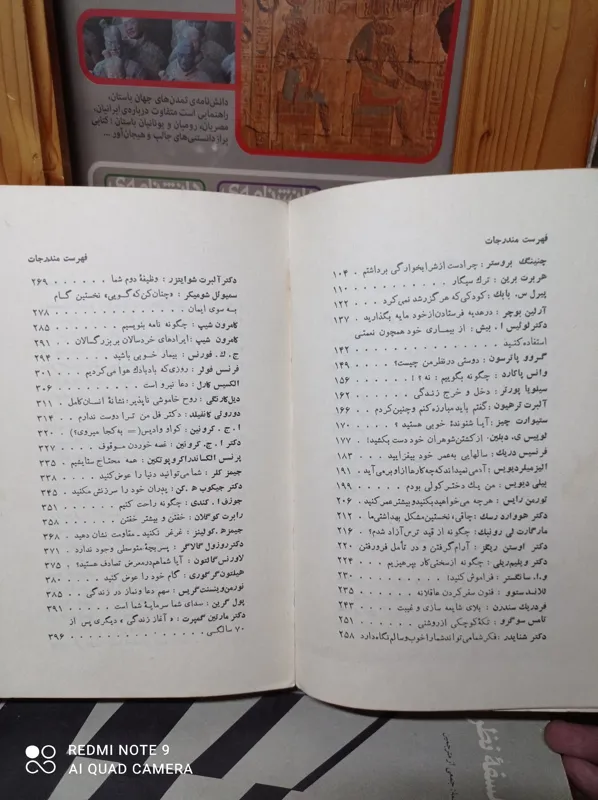 دانش‌نامه‌ی تمدن‌های جهان باستان،
راهنمایی است متفاوت درباره‌ی ایرانیان،
مصریان، رومیان و یونانیان باستان؛ کتابی
پر از دانستنی‌های جالب و هیجان‌آور ...
فهرست مندرجات
چنینگ پروستر: چرا دست از شرابخوارگی برداشتم ۱۰۴
هربرت برین: ترک سیگار ۱۱۰
پیرل س. باک: کودکی که هرگز رشد نمی‌کرد ۱۲۲
آرلین بوچر: در هدیه فرستادن از خود مایه بگذارید ۱۳۷
دکتر لوئیس ا. بیش: از بیماری خود همچون نعمتی
استفاده کنید ۱۴۲
گروو پاترسون: دوستی در نظر من چیست؟ ۱۴۹
وانس پاکارد: چگونه بگوییم: نه! ۱۵۶
سیلویا پورتر: دخل و خرج زندگی ۱۶۲
آلبرت ترهیون: گفتم باید مبارزه کنم و چنین کردم ۱۶۶
ستیوارت چیز: آیا شنونده خوبی هستید؟ ۱۷۰
لوییس ی. دبلین: از کشتن شوهران خود دست بکشید! ۱۷۷
فرنسیس دریک: سالهایی به عمر خود بیفزایید ۱۸۳
الیزمیلر دیویس: آدمی نمیداند که چه کارها از او بر می‌آید ۱۹۱
بیلی دیویس: من یک دختر کولی بودم ۱۹۹
نورمن رایس: هرچه می‌خواهید بکنید و بیشتر عمر کنید ۲۰۶
دکتر هووارد رسک: چاقی، نخستین مشکل بهداشتی ما ۲۱۲
مارگارت لی رونبک: چگونه از قید ترس آزاد شدم؟ ۲۱۶
دکتر اوستن ریگز: آرام گرفتن و در تأمل فرو رفتن ۲۲۰
دکتر ویلیم ریلی: چگونه از سختی کار بپرهیزیم ۲۲۴
و.ا. سانگستر: فراموش کنید! ۲۳۰
لاندستوو: فنون سفر کردن عاقلانه ۲۳۵
فردریک سندرن: بلای شایعه سازی و غیبت ۲۴۳
تامس سوگرو: تکه کوچکی از روشنی ۲۵۱
دکتر شنایدر: فکر شما می‌تواند شما را خوب و سالم نگاه دارد ۲۵۸
فهرست مندرجات
دکتر آلبرت شوایتزر: وظیفهٔ دوم شما ۲۶۹
سمیوائل شومیکر: «چنان کن که گویی» نخستین گام
به سوی ایمان ۲۷۸
کامرون شیپ: چگونه نامه بنویسیم ۲۸۵
کامرون شیپ: ایرادهای خردسالان بر بزرگسالان ۲۹۱
ج. ک. فورنس: بیمار خوبی باشید ۲۹۴
فرنسس فولر: روزی که بادبادک هوا می‌کردیم ۳۰۱
الکسیس کارل: دعا نیرو است ۳۰۶
دیل کارنگی: روح خاموشی ناپذیر: نشانهٔ انسان کامل ۳۱۱
دوروثی کانفیلد: دکتر قل من ترا دوست ندارم ۳۱۴
ا. ج. کرونین: کوا وادیس (= به کجا میروی؟) ۳۲۰
دکتر ا. ج. کرونین: غصه خوردن موقوف ۳۲۷
پرنس الکساندر اکروپوتکین: همه محتاج ستایشیم ۳۳۵
جیمز کلر: شما می‌توانید دنیا را عوض کنید ۳۳۸
دکتر جیکوب ه. کن: پدران خود را سرزنش مکنید ۳۴۵
جوزف ا. کندی: چگونه راحت کنیم ۳۵۱
رابرت کوگلان: خفتن و بیشتر خفتن ۳۵۸
جیمز ه. کولینز: غرغر نکنید. مقاومت نشان دهید ۳۶۸
دکتر روزول گالاگر: پسر بچهٔ متوسطی وجود ندارد ۳۷۱
لاورنس گالتون: آیا شما هم در معرض تصادف هستید؟ ۳۷۵
هیلتون گرگوری: گام خود را عوض کنید ۳۸۰
نورمن وینسنت گریس: سهم دعا و نماز در زندگی ۳۸۵
پول گرین: صدای شما سرمایهٔ شما است ۳۹۱
دکتر مارتین گمپرت: «آغاز زندگی» دیگری پس از
۷۰ سالگی ۳۹۶
REDMI NOTE 9
AI QUAD CAMERA